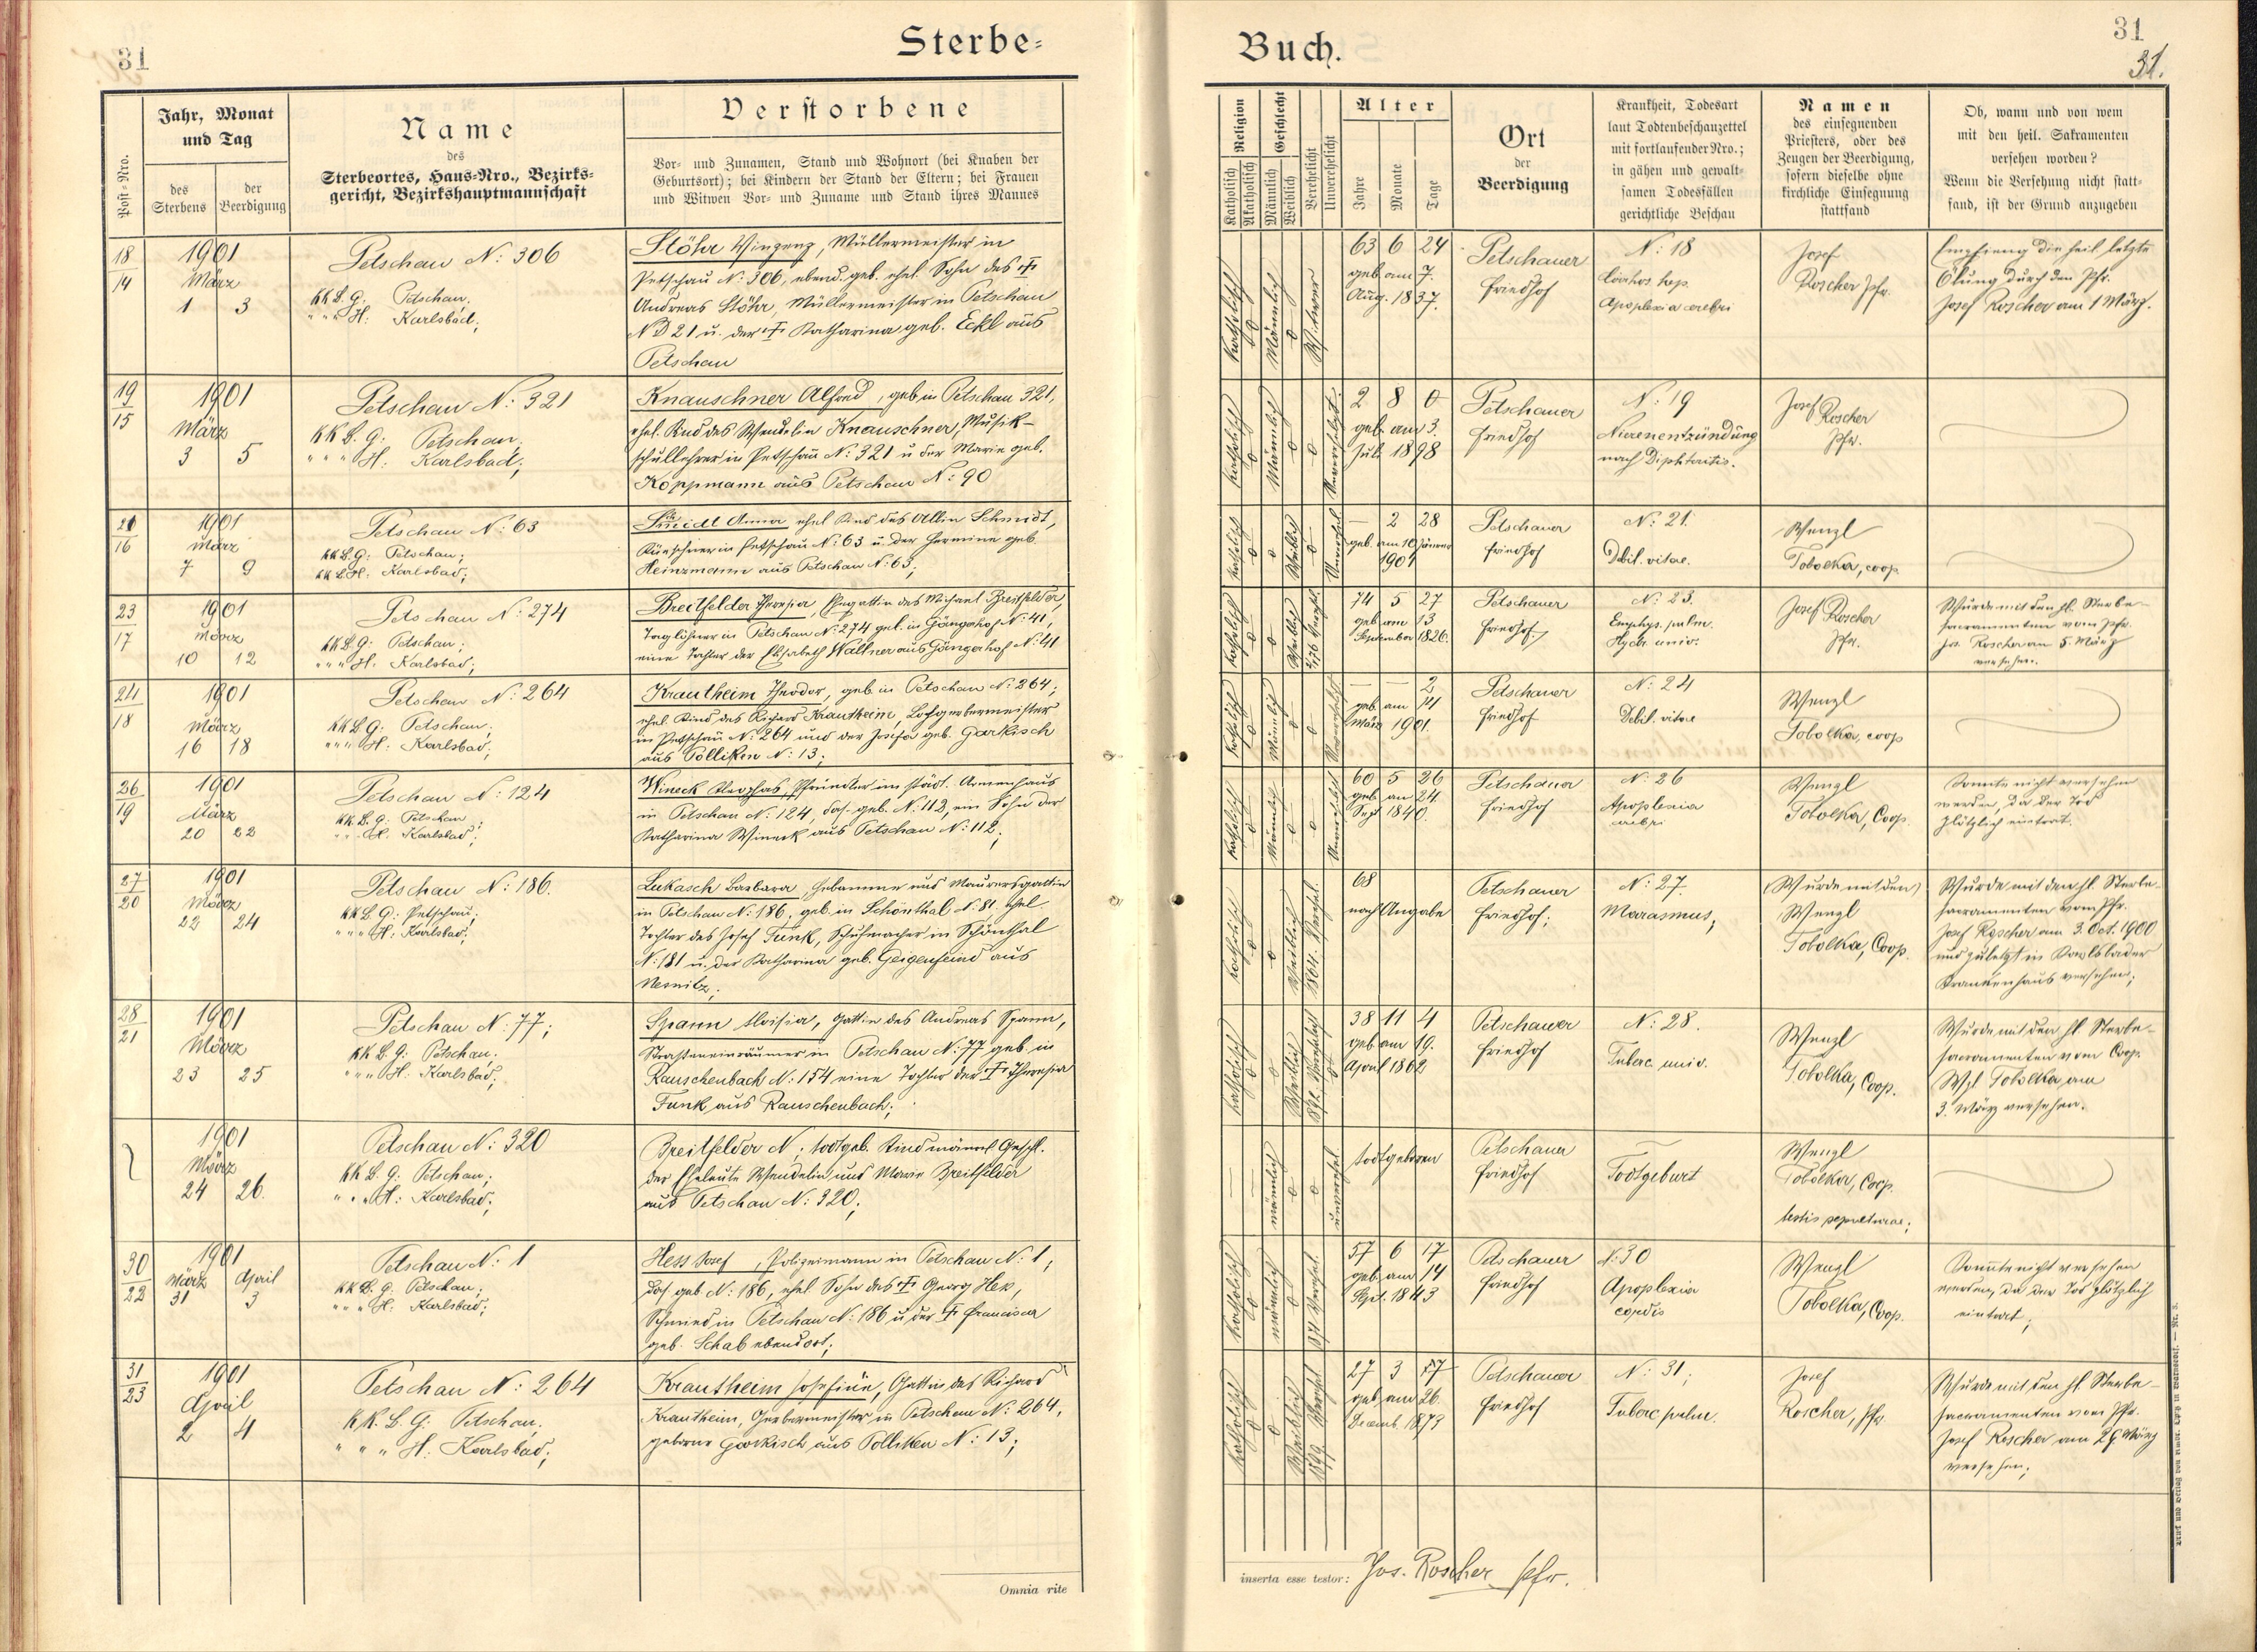 31
Sterbe-
Post-Nro.
Jahr, Monat
und Tag
des
Sterbens
der
Beerdigung
Name
des
Sterbeortes, Haus-Nro., Bezirks-
gericht, Bezirkshauptmannschaft
Verstorbene
Vor- und Zunamen, Stand und Wohnort (bei Knaben der
Geburtsort); bei Kindern der Stand der Eltern; bei Frauen
und Witwen Vor- und Zuname und Stand ihres Mannes
18
14
1901
März
1 3
Petschau N: 306
KK B. G: Petschau;
" " " H: Karlsbad;
Stöhr Vinzenz, Müllermeister in
Petschau N: 306, ebend. geb. ehel. Sohn des †
Andreas Stöhr, Müllermeister in Petschau
N° 21 u. der † Katharina geb. Eckl aus
Petschau
19
15
1901
März
3 5
Petschau N: 321
KK B. G: Petschau;
" " " H: Karlsbad;
Knauschner Alfred, geb. in Petschau 321,
ehel. Kind des Wendelin Knauschner, Musik-
schullehrer in Petschau N: 321 u. der Marie geb.
Koppmann aus Petschau N: 90
21
16
1901
März
7 9
Petschau N: 63
KK B. G: Petschau;
KK B H: Karlsbad;
Anna ehel Kind des Schmidt,
Kürschner in Petschau N: 63 u. der Hermine geb
Heinzmann aus Petschau N: 63;
23
17
1901
März
10 12
Petschau N: 274
KK B. G: Petschau;
" " " H. Karlsbad;
Breitfelder Theresia, Ehegattin des Michael Breitfelder,
Taglöhner in Petschau N: 274 geb. in Gängerhof N: 41,
eine Tochter der Elisabeth Wallner aus Gängerhof N: 41
24
18
1901
März
16 18
Petschau N: 264
KK B. G: Petschau;
" " " H: Karlsbad;
Krautheim Theodor, geb. in Petschau N: 264;
ehel. Kind des Richard Krautheim, Lohgerbermeister
in Petschau N: 264 und der Josefa geb. Garkisch
aus Polliken N: 13;
26
19
1901
März
20 22
Petschau N: 124
KK. B. G: Petschau;
" " H: Karlsbad;
Wineck Kleophas, Pfründler im städt. Armenhaus
in Petschau N: 124, das. geb. N: 112, ein Sohn der
Katharina Wineck aus Petschau N: 112;
27
20
1901
März
22 24
Petschau N: 186.
KK B. G: Petschau;
" " " H: Karlsbad;
Lukasch Barbara, Hebamme und Maurersgattin
in Petschau N: 186, geb. in Schönthal N: 81 ehel.
Tochter des Josef Funk, Schuhmacher in Schönthal
N: 181 u. der Katharina geb. Geigenfeind aus
28
21
1901
März
23 25
Petschau N: 77;
KK B. G: Petschau;
" " " H: Karlsbad;
Spann Aloisia, Gattin des Andreas Spann,
Straßeneinräumer in Petschau N: 77 geb. in
Rauschenbach N: 154 eine Tochter der † Theresia
Funk aus Rauschenbach;
1901
März
24 26.
Petschau N: 320
KK B. G: Petschau;
" " " H: Karlsbad;
Breitfelder N; todtgeb. Kind männl. Geschl.
der Eheleute Wendelin und Marie Breitfelder
aus Petschau N: 320;
30
22
1901
März April
31 3
Petschau N: 1
KK B. G: Petschau;
" " " H: Karlsbad;
Hess Josef, Polizeimann in Petschau N: 1,
das. geb. N: 186, ehel. Sohn des † Georg Heß,
Schmied in Petschau N: 186 u. der † Francisca
geb. Schab ebendort;
31
23
1901
April
2 4
Petschau N: 264
KK. B. G: Petschau;
" " " H: Karlsbad;
Krautheim Josefine, Gattin des Richard
Krautheim, Gerbermeister in Petschau N: 264,
geborne Garkisch aus Polliken N: 13;
Omnia rite
Buch.
31
31.
Religion
Katholisch
Akatholisch
Geschlecht
Männlich
Weiblich
Verehelicht
Unverehelicht
Alter
Jahre
Monate
Tage
Ort
der
Beerdigung
Krankheit, Todesart
laut Todtenbeschauzettel
mit fortlaufender Nro.;
in gähen und gewalt-
samen Todesfällen
gerichtliche Beschau
Namen
des einsegnenden
Priesters, oder des
Zeugen der Beerdigung,
sofern dieselbe ohne
kirchliche Einsegnung
stattfand
Ob, wann und von wem
mit den heil. Sakramenten
versehen worden?
Wenn die Versehung nicht statt-
fand, ist der Grund anzugeben
Katholisch
Männlich
Witwer
63 6 24
geb. am 7.
Aug. 1837.
Petschauer
Friedhof
N: 18
Apoplexia cerebri
Josef
Roscher Pfr.
Empfieng die heil. letzte
Ölung durch den Pfr.
Josef Roscher am 1 März.
Katholisch
Männlich
Unverehelicht
2 8 0
geb. am 3.
Juli 1898
Petschauer
Friedhof
N: 19
Nierenentzündung
nach Diphteritis.
Josef Roscher
Pfr.
Katholisch
Weiblich
— 2 28
geb. am 10 Jänner
1901
Petschauer
Friedhof
N: 21.
Debil. vitae.
Wenzl
Tobolka, coop.
Katholisch
Weiblich
74 5 27
geb. am 13
September 1826.
Petschauer
Friedhof
N: 23.
Emphys. pulm.
Hydr. univ.
Josef Roscher
Pfr.
Wurde mit den hl. Sterbe-
sacramenten vom Pfr.
Jos. Roscher am 5. März
versehen.
Katholisch
Männlich
Unverehelicht
— — 2
geb. am 14
März 1901.
Petschauer
Friedhof
N: 24
Debil. vitae
Wenzl
Tobolka, coop
Katholisch
Männlich
Unverehelicht
60 5 26
geb. am 24.
Sept 1840.
Petschauer
Friedhof
N: 26
Apoplexia
cerebri
Wenzl
Tobolka, Coop.
Konnte nicht versehen
werden, da der Tod
plötzlich eintrat.
Katholisch
Weiblich
1864. Verehel.
68
nach Angabe
Petschauer
Friedhof;
N: 27.
Marasmus;
(Wurde mit den)
Wenzl
Tobolka, Coop.
Wurde mit den hl. Sterbe-
sacramenten vom Pfr.
Josef Roscher am 3. Oct. 1900
und zuletzt im Karlsbader
Krankenhaus versehen;
Katholisch
Weiblich
1892. Verehelicht
38 11 4
geb am 19.
April 1862
Petschauer
Friedhof
N: 28.
Tuberc. univ.
Wenzl
Tobolka, Coop.
Wurde mit den hl. Sterbe-
sacramenten vom Coop.
Wzl Tobolka am
3. März versehen.
männlich
unverehel
todtgeboren
Petschauer
Friedhof
Todtgeburt
Wenzl
Tobolka, Coop.
testis sepulturae;
Katholisch
männlich
1871 Verehel.
57 6 17
geb. am 14
Sept. 1843
Petschauer
Friedhof
N: 30
Apoplexia
cordis
Wenzl
Tobolka, Coop.
Konnte nicht versehen
werden, da der Tod plötzlich
eintrat;
Katholisch
Weiblich
1899. Verehel
27 3 7
geb. am 26.
Decemb. 1873
Petschauer
Friedhof
N: 31;
Tuberc pulm.
Josef
Roscher, Pfr.
Wurde mit den hl. Sterbe-
sacramenten vom Pfr.
Josef Roscher am 29. März
versehen;
inserta esse testor: Jos. Roscher Pfr.